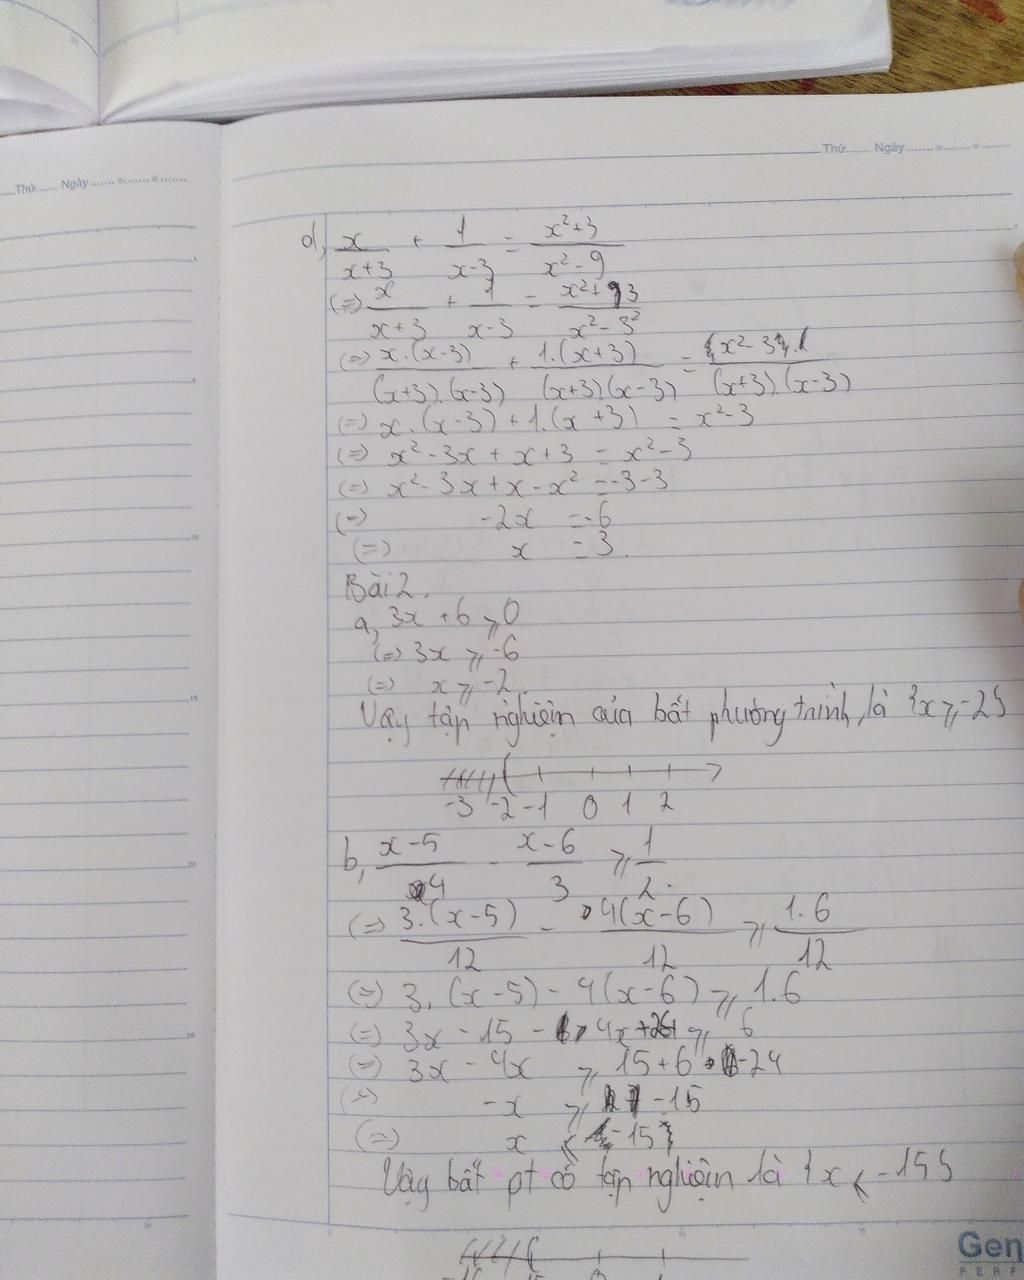 Thứ....... Ngày.......
Thứ....... Ngày.......
d, x/(x+3) + 1/(x-3) = (x²+3)/(x²-9)
(=) x/(x+3) + 1/(x-3) = (x²+3)/(x²-3²)
(=) x.(x-3)/(x+3).(x-3) + 1.(x+3)/(x+3)(x-3) = (x²-3).1/(x+3).(x-3)
(=) x.(x-3) + 1.(x+3) = x²-3
(=) x² - 3x + x + 3 = x² - 3
(=) x² - 3x + x - x² = -3 - 3
(=) -2x = -6
(=) x = 3.
Bài 2.
a, 3x + 6 ⩾ 0
(=) 3x ⩾ -6
(=) x ⩾ -2
Vậy tập nghiệm của bất phương trình là {x ⩾ -2}
-3 -2 -1 0 1 2
b, (x-5)/4 - (x-6)/3 ⩾ 1/2.
(=) 3.(x-5)/12 - 4(x-6)/12 ⩾ 1.6/12
(=) 3.(x-5) - 4(x-6) ⩾ 1.6
(=) 3x - 15 - 4x + 24 ⩾ 6
(=) 3x - 4x ⩾ 15 + 6 - 24
(=) -x ⩾ -15
(=) x ⩽ {-15}
Vậy bất pt có tập nghiệm là {x ⩽ -15}
Gen
PERF